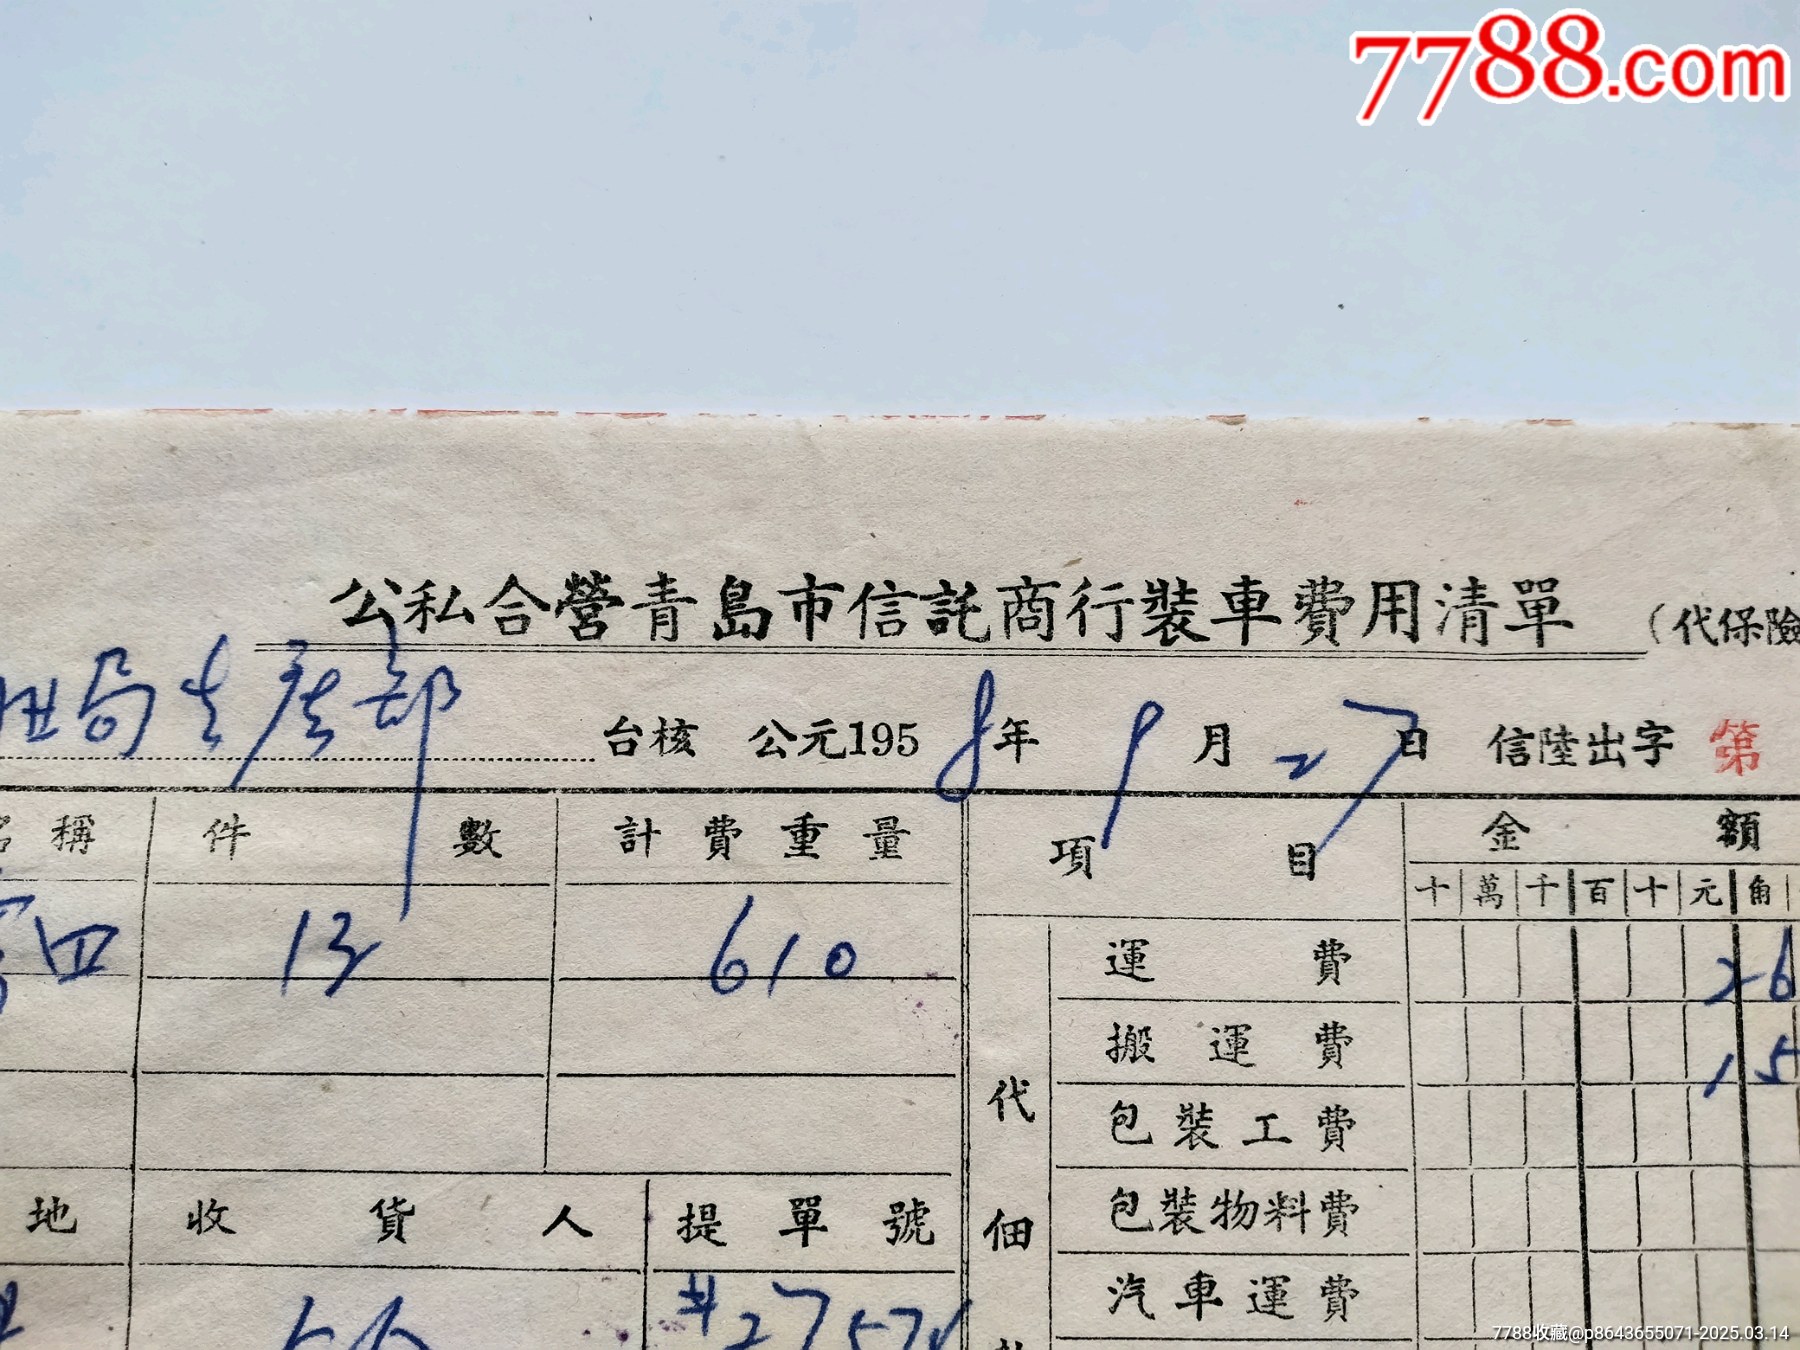 7788.com
公私合營青島市信託商行裝車費用清單 (代保險
局生產部 台核 公元1958年9月27日 信陸出字 第
稱 件數 計費重量 項目 金額
十萬千百十元角
四 13 610 運費 26
搬運費 15
代佃 包裝工費
地 收貨人 提單號 包裝物料費
汽車運費
7788收藏@p8643655071-2025.03.14